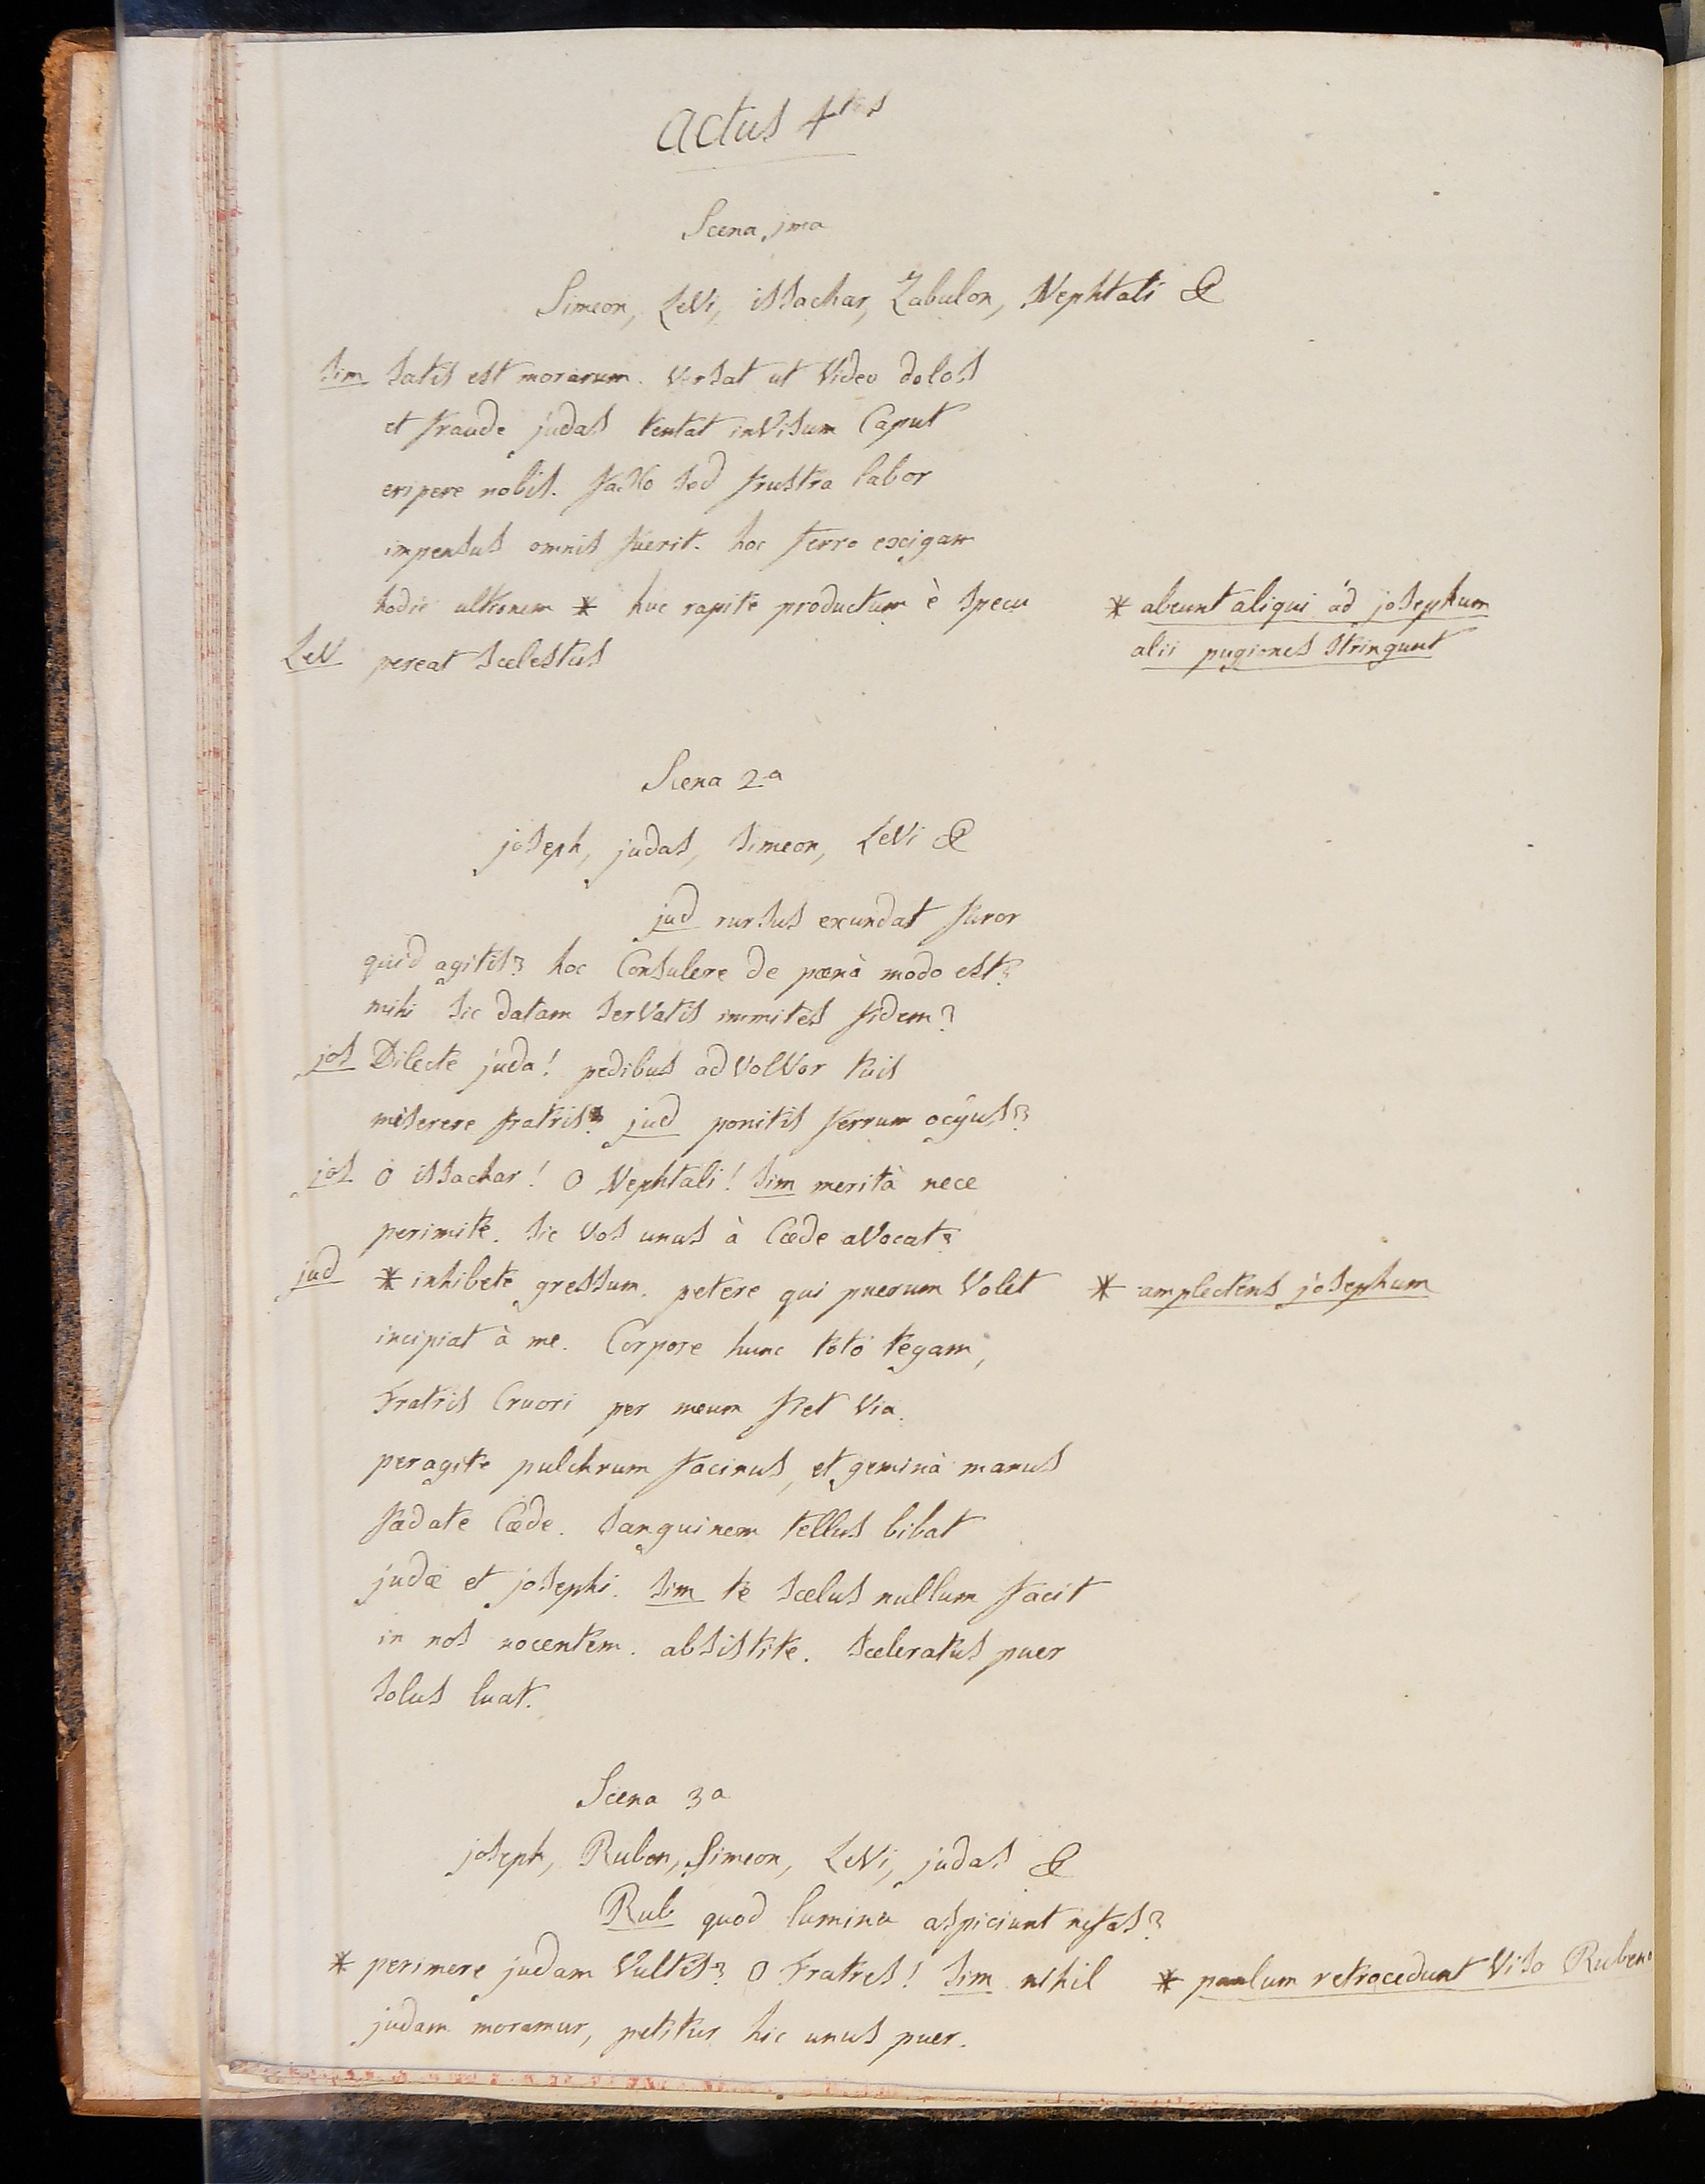 Actus 4tus
Scena 1ma
Simeon, Levi, issachar, Zabulon, Nephtali &
sim satis est morarum. Versat ut Video dolos
et fraude judas tentat inVisum Caput
eripere nobis. facto sed frustra labor
impensus omnis fuerit. hoc ferro exigam
hodie ultionem * huc rapite productum è specu * abeunt aliqui ad josephum
LeV pereat scelestus alii pugiones stringunt
Scena 2a
joseph, judas, simeon, LeVi &
jud rursus exundat furor
quid agitis? hoc Consulere de pœnà modo est?
mihi sic datam serVatis immites fidem?
jos Dilecte juda! pedibus adVolVor tuis
miserere fratris! jud ponitis ferrum ocÿus?
jos O issachar! O Nephtali! sim merità nece
perimite. sic Vos unus à Cæde aVocat?
jud * inhibete gressum. petere qui puerum Volet * amplectens josephum
incipiat à me. Corpore hunc toto tegam,
Fratris Cruori per meum fiet Via.
peragite pulchrum facinus, et geminà manus
fœdate Cæde. sanguinem tellus bibat
judæ et josephi. sim te scelus nullum facit
in nos nocentem. absistite. sceleratus puer
solus luat.
Scena 3a
joseph, Ruben, Simeon, LeVi, judas &
Rub quod lumina aspiciunt nefas?
* perimere judam Vultis? O Fratres! sim nihil * paulum retrocedunt Viso Rubeno
judam moramur, petitur hic unus puer.